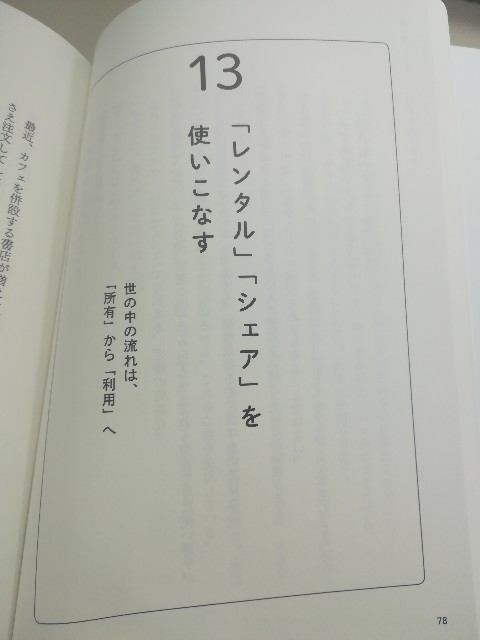 13
「レンタル」「シェア」を
使いこなす
世の中の流れは、
「所有」から「利用」へ
78
最近、カフェを併設する書店が増
さえ注文して